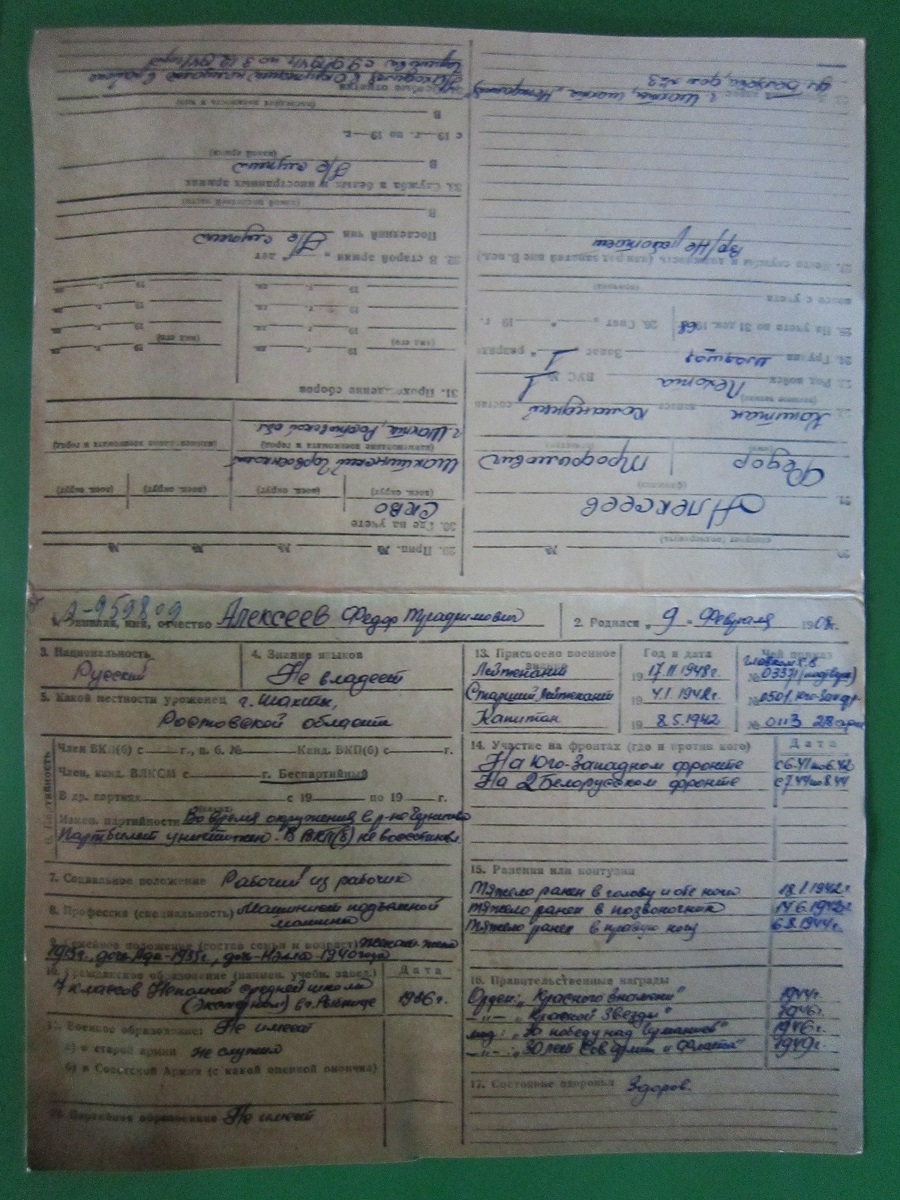 А-959809
1. Фамилия, имя, отчество Алексеев Федор Трофимович
2. Родился „9" Февраля 1908г.
3. Национальность
Русский
4. Знание языков
Не владеет
5. Какой местности уроженец г. Шахты,
Ростовской области
Член ВКП(б) с г., п. б. № Канд. ВКП(б) с г.
Член, канд. ВЛКСМ с г. Беспартийный
В др. партиях с 19 по 19 г.
Измен. партийности Во время окружения в р-не
Партбилет уничтожен. В ВКП(б) не восстановл.
7. Социальное положение Рабочий из рабочих
8. Профессия (специальность) Машинист подъемной
машины
9. Семейное положение (состав семьи и возраст) жена
1940 года
10. Гражданское образование (наимен. учебн. завед.)
Дата
7 классов Неполной средней школы
(Экстерном) в г.
1936г.
11. Военное образование: Не имеет
а) в старой армии не служил
б) в Советской Армии (с какой оценкой окончил)
12. Партийное образование Не имеет
13. Присвоено военное звание
Год и дата
Чей приказ
Лейтенант
№ 03371
Старший Лейтенант
№ 050
Капитан 19 8.5.1942 № 0113 28 арм
14. Участие на фронтах (где и против кого)
Дата
На Юго-Западном фронте с 6.41 по 6.42
На 2 Белорусском фронте с 7.44 по 8.44
15. Ранения или контузии
Тяжело ранен в голову и обе ноги 18.1.1942г.
Тяжело ранен в позвоночник 14.6.1942г
Тяжело ранен в правую ногу 6.8.1944г.
16. Правительственные награды
Орден: „Красного знамени" 1944г.
—"— „Красной Звезды" 1946г.
мед: „За победу над Германией" 1946г.
—"— „30 лет Сов армии и Флота" 1949г.
17. Состояние здоровья Здоров.
20. №
(спецучет (литер/учета))
21. Алексеев
(фамилия)
Федор Трофимович
22. Капитан запаса Командный состав
(военное звание)
23. Род войск Пехота ВУС № 1
24. Группа младшая Запас 1 „ разряд
25. На учете по 31 дек. 1968 26. Снят „ " 19 г.
вовсе с учета
(причина)
27. Место службы и должность (или род занятий вне В. вед.)
Вр/Не работает
г. Шахты, шахта „Нежданная"
дом № 23
29. Прип. № № № №
30. Где на учете
СКВО
(воен. округ) (воен. округ) (воен. округ) (воен. округ)
Шахтинский Горвоенкомат
(наименование военкомата и город) (наименование военкомата и город)
г. Шахты, Ростовской обл
31. Прохождение сборов
(вид его) (вид его)
32. В старой армии „ " лет
Последний чин Не служил
В
(какой последней части)
33. Служба в белых и иностранных армиях
В Не служил
(какой армии)
с 19 г. по 19 г.
В
(последняя должность и чин)
34. Особые отметки
Находился в окружении противника в районе
с 9.9.1941г. по 3.12.1941 года